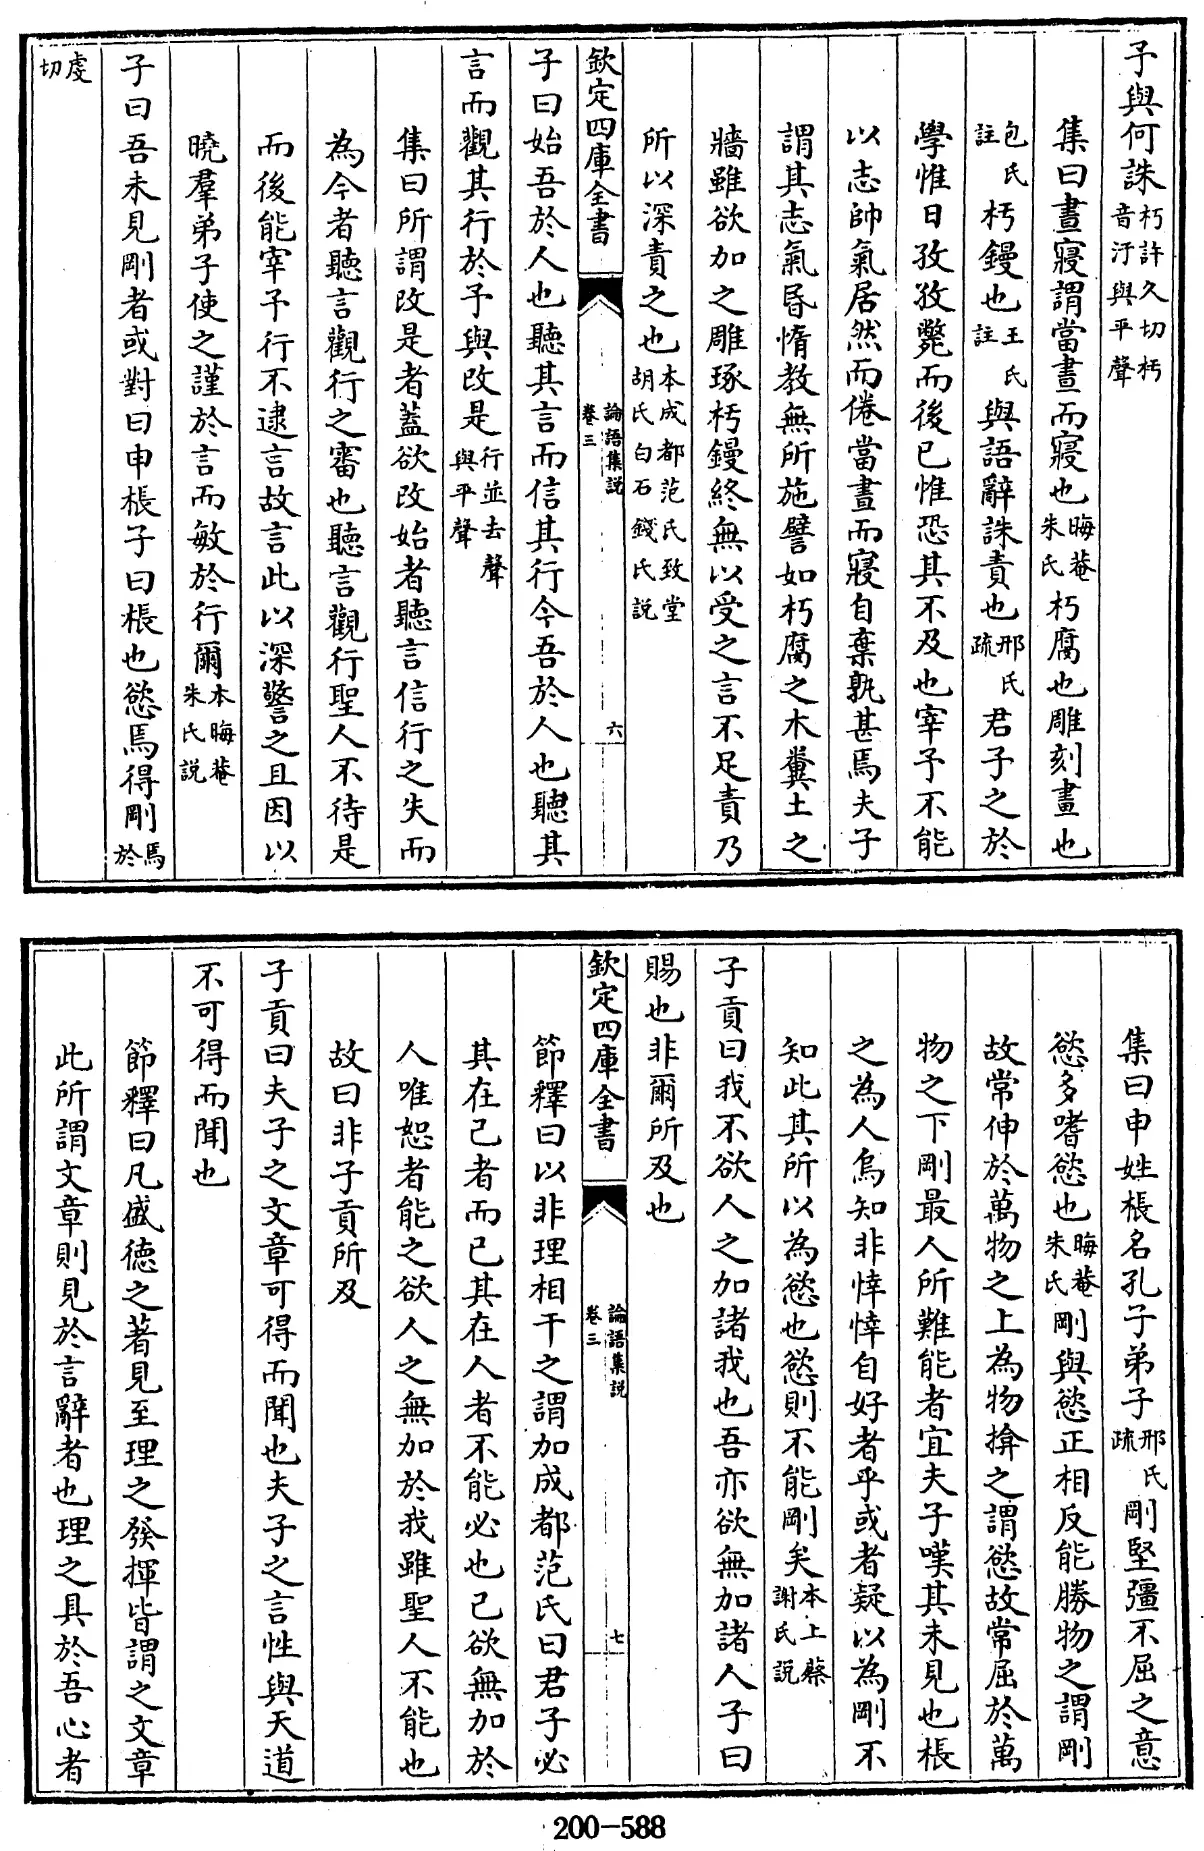 予與何誅朽許久切杇音汙與平聲
集曰晝寢謂當晝而寢也晦菴朱氏朽腐也雕刻畫也
包氏註杇鏝也王氏註與語辭誅責也邢氏疏君子之於
學惟日孜孜斃而後已惟恐其不及也宰予不能
以志帥氣居然而倦當晝而寢自棄孰甚焉夫子
謂其志氣昏惰教無所施譬如朽腐之木糞土之
牆雖欲加之雕琢杇鏝終無以受之言不足責乃
所以深責之也本成都范氏致堂胡氏白石錢氏說
欽定四庫全書 論語集說卷三 六
子曰始吾於人也聽其言而信其行今吾於人也聽其
言而觀其行於予與改是行並去聲與平聲
集曰所謂改是者蓋欲改始者聽言信行之失而
為今者聽言觀行之審也聽言觀行聖人不待是
而後能宰予行不逮言故言此以深警之且因以
曉羣弟子使之謹於言而敏於行爾本晦菴朱氏說
子曰吾未見剛者或對曰申棖子曰棖也慾焉得剛焉於
虔切
集曰申姓棖名孔子弟子邢氏疏剛堅彊不屈之意
慾多嗜慾也晦菴朱氏剛與慾正相反能勝物之謂剛
故常伸於萬物之上為物揜之謂慾故常屈於萬
物之下剛最人所難能者宜夫子嘆其未見也棖
之為人烏知非悻悻自好者乎或者疑以為剛不
知此其所以為慾也慾則不能剛矣本上蔡謝氏說
子貢曰我不欲人之加諸我也吾亦欲無加諸人子曰
賜也非爾所及也
欽定四庫全書 論語集說卷三 七
節釋曰以非理相干之謂加成都范氏曰君子必
其在己者而已其在人者不能必也己欲無加於
人唯恕者能之欲人之無加於我雖聖人不能也
故曰非子貢所及
子貢曰夫子之文章可得而聞也夫子之言性與天道
不可得而聞也
節釋曰凡盛德之著見至理之發揮皆謂之文章
此所謂文章則見於言辭者也理之具於吾心者
200-588